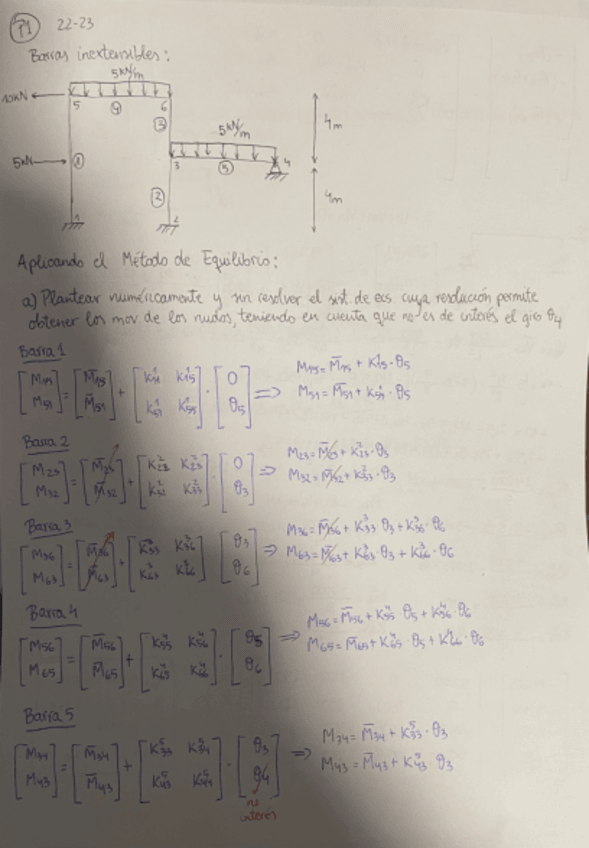 P1 22-23
Barras inextensibles:
5 kN/m
10 kN
5 4 6
3
5 kN/m
4 m
5 kN
1
3 5 4
2
4 m
1 2
Aplicando el Método de Equilibrio:
a) Plantear numéricamente y sin resolver el sist. de ecs. cuya resolución permite
obtener los mov de los nudos, teniendo en cuenta que no es de interés el giro θ4
Barra 1
[M15 M51] = [M̄15 M̄51] + [K¹11 K¹15 K¹51 K¹55] · [0 θ5] ⇒ M15 = M̄15 + K¹15 · θ5
M51 = M̄51 + K¹55 · θ5
Barra 2
[M23 M32] = [M̄23 M̄32] + [K²22 K²23 K²32 K²33] · [0 θ3] ⇒ M23 = M̄23 + K²23 · θ3
M32 = M̄32 + K²33 · θ3
Barra 3
[M36 M63] = [M̄36 M̄63] + [K³33 K³36 K³63 K³66] · [θ3 θ6] ⇒ M36 = M̄36 + K³33 · θ3 + K³36 · θ6
M63 = M̄63 + K³63 · θ3 + K³66 · θ6
Barra 4
[M56 M65] = [M̄56 M̄65] + [K⁴55 K⁴56 K⁴65 K⁴66] · [θ5 θ6] ⇒ M56 = M̄56 + K⁴55 · θ5 + K⁴56 · θ6
M65 = M̄65 + K⁴65 · θ5 + K⁴66 · θ6
Barra 5
[M34 M43] = [M̄34 M̄43] + [K⁵33 K⁵34 K⁵43 K⁵44] · [θ3 θ4] ⇒ M34 = M̄34 + K⁵33 · θ3
M43 = M̄43 + K⁵43 · θ3
no
interés